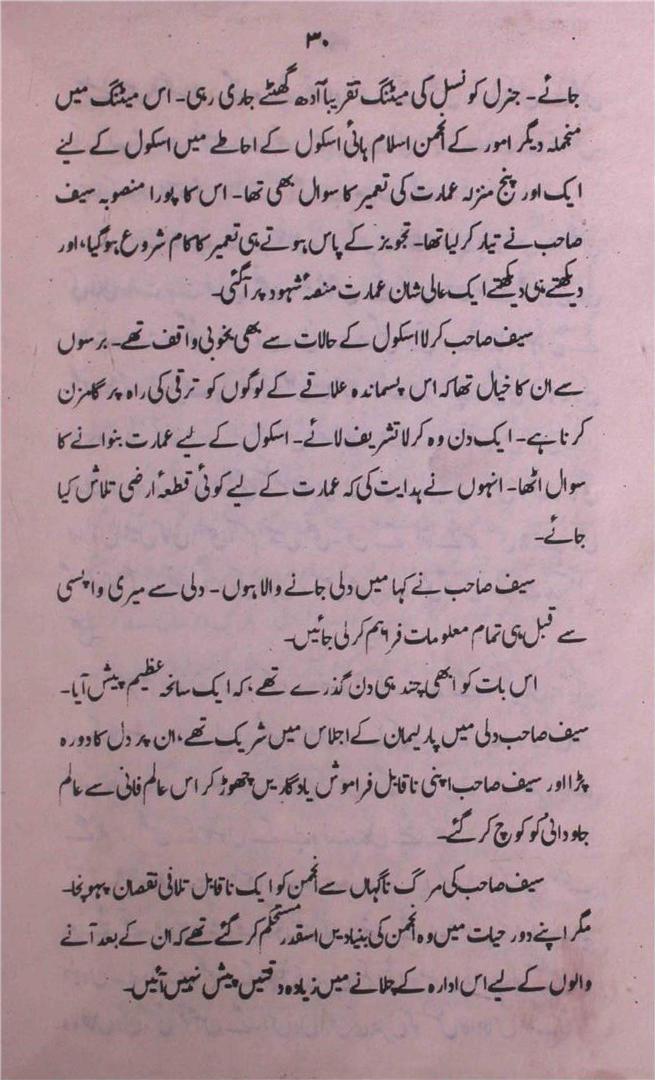 ۳۰
جائے۔ جنرل کونسل کی میٹنگ تقریباً آدھ گھنٹے جاری رہی۔ اس میٹنگ میں
منجملہ دیگر امور کے انجمن اسلام ہائی اسکول کے احاطے میں اسکول کے لئے
ایک اور پنج منزلہ عمارت کی تعمیر کا سوال بھی تھا۔ اس کا پورا منصوبہ سیف
صاحب نے تیار کر لیا تھا۔ تجویز کے پاس ہوتے ہی تعمیر کا کام شروع ہو گیا، اور
دیکھتے ہی دیکھتے ایک عالی شان عمارت منصۂ شہود پر آ گئی۔
سیف صاحب کرلا اسکول کے حالات سے بھی بخوبی واقف تھے۔ برسوں
سے ان کا خیال تھا کہ اس پسماندہ علاقے کے لوگوں کو ترقی کی راہ پر گامزن
کرنا ہے۔ ایک دن وہ کرلا تشریف لائے۔ اسکول کے لیے عمارت بنوانے کا
سوال اٹھا۔ انہوں نے ہدایت کی کہ عمارت کے لیے کوئی قطعۂ ارضی تلاش کیا
جائے۔
سیف صاحب نے کہا میں دلی جانے والا ہوں۔ دلی سے میری واپسی
سے قبل ہی تمام معلومات فراہم کر لی جائیں۔
اس بات کو ابھی چند ہی دن گذرے تھے، کہ ایک سانحہ عظیم پیش آیا۔
سیف صاحب دلی میں پارلیمان کے اجلاس میں شریک تھے، ان پر دل کا دورہ
پڑا اور سیف صاحب اپنی ناقابل فراموش یادگاریں چھوڑ کر اس عالم فانی سے عالم
جاودانی کو کوچ کر گئے۔
سیف صاحب کی مرگ ناگہاں سے انجمن کو ایک ناقابل تلافی نقصان پہونچا۔
مگر اپنے دور حیات میں وہ انجمن کی بنیادیں اسقدر مستحکم کر گئے تھے کہ ان کے بعد آنے
والوں کے لیے اس ادارہ کے چلانے میں زیادہ دقتیں پیش نہیں آئیں۔